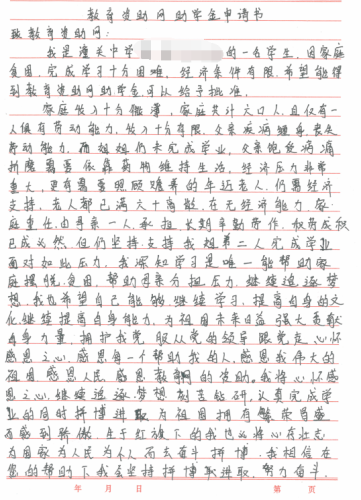 教育资助网助学金申请书
致教育资助网：
我是潼关中学 的一名学生，因家庭
贫困，完成学习十分困难，经济条件有限，希望能得
到教育资助网助学金，可以给予批准。
家庭收入十分微薄，家庭共计六口人，且仅有一
人俱有劳动能力，收入十分有限，父亲疾病缠身，丧失
劳动能力，而姐姐们未完成学业，父亲饱受病痛
折磨需要依靠药物维持生活，经济压力非常
重大，更有需要照顾赡养的年近老人，仍需经济
支持，老人都已满六十高龄，在无经济能力，家
庭重任由母亲一人，承担，长期辛勤劳作，积劳成疾
已成必然，但仍坚持支持我姐弟二人完成学业
面对如此压力，我深知学习是唯一能帮助家
庭摆脱贫困，帮助母亲分担压力，继续追逐梦
想，我也希望自己能够继续学习，提高自身的文
化继续提高自身能力，为祖国未来日益强大贡献
自身力量，拥护我党，服从党的领导跟党走，心怀
感恩之心，感恩每一个帮助我的人，感恩我伟大的
祖国感恩人民，感恩教育网的资助。我将心怀感
恩之心，继续追逐梦想，刻苦钻研，认真完成学
业的同时拼搏进取，为祖国拥有繁荣昌盛
而感到骄傲，生于红旗下的我也必将心存壮志
为国家为人民为个人而去奋斗拼搏，我相信在
您的帮助下我会坚持拼搏积极进取，努力奋斗。
年 月 日 第 页